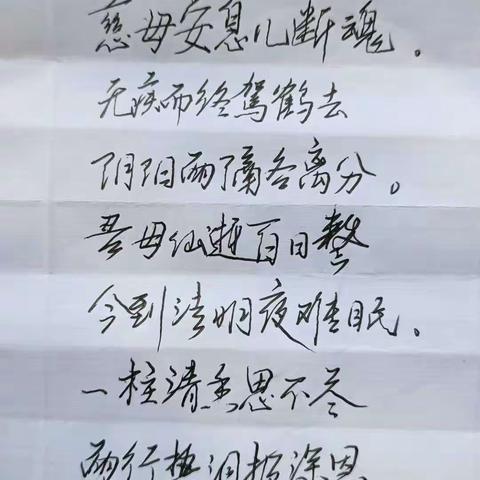 慈母安息儿断魂。
无疾而终驾鹤去
阴阳两隔各离分。
吾母仙逝百日整
今到清明夜难眠。
一柱清香思不尽
两行热泪报深恩